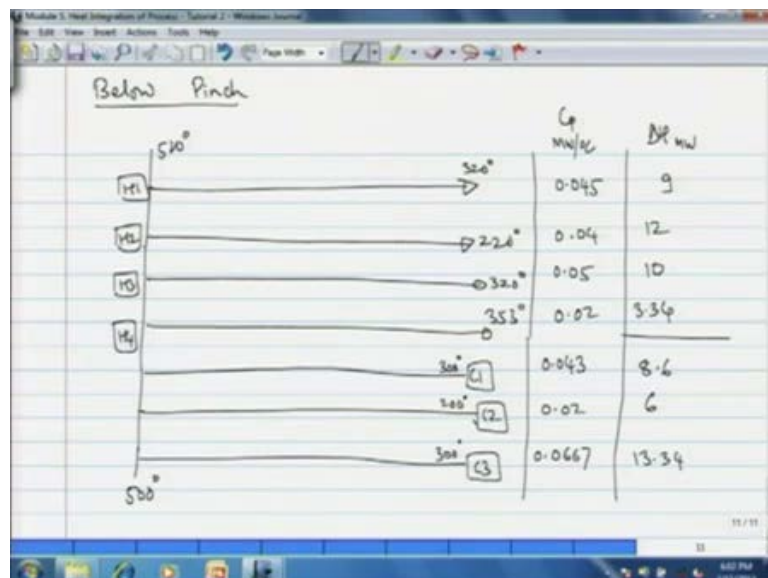 Module 5. Heat Integration of Process - Tutorial 2 - Windows Journal
File Edit View Insert Actions Tools Help
Page Width
Below Pinch
Cp MW/°C
ΔH MW
520°
H1 320° 0.045 9
H2 220° 0.04 12
H3 320° 0.05 10
H4 353° 0.02 3.34
300° C1 0.043 8.6
200° C2 0.02 6
300° C3 0.0667 13.34
500°
11 / 11
33
6:02 PM